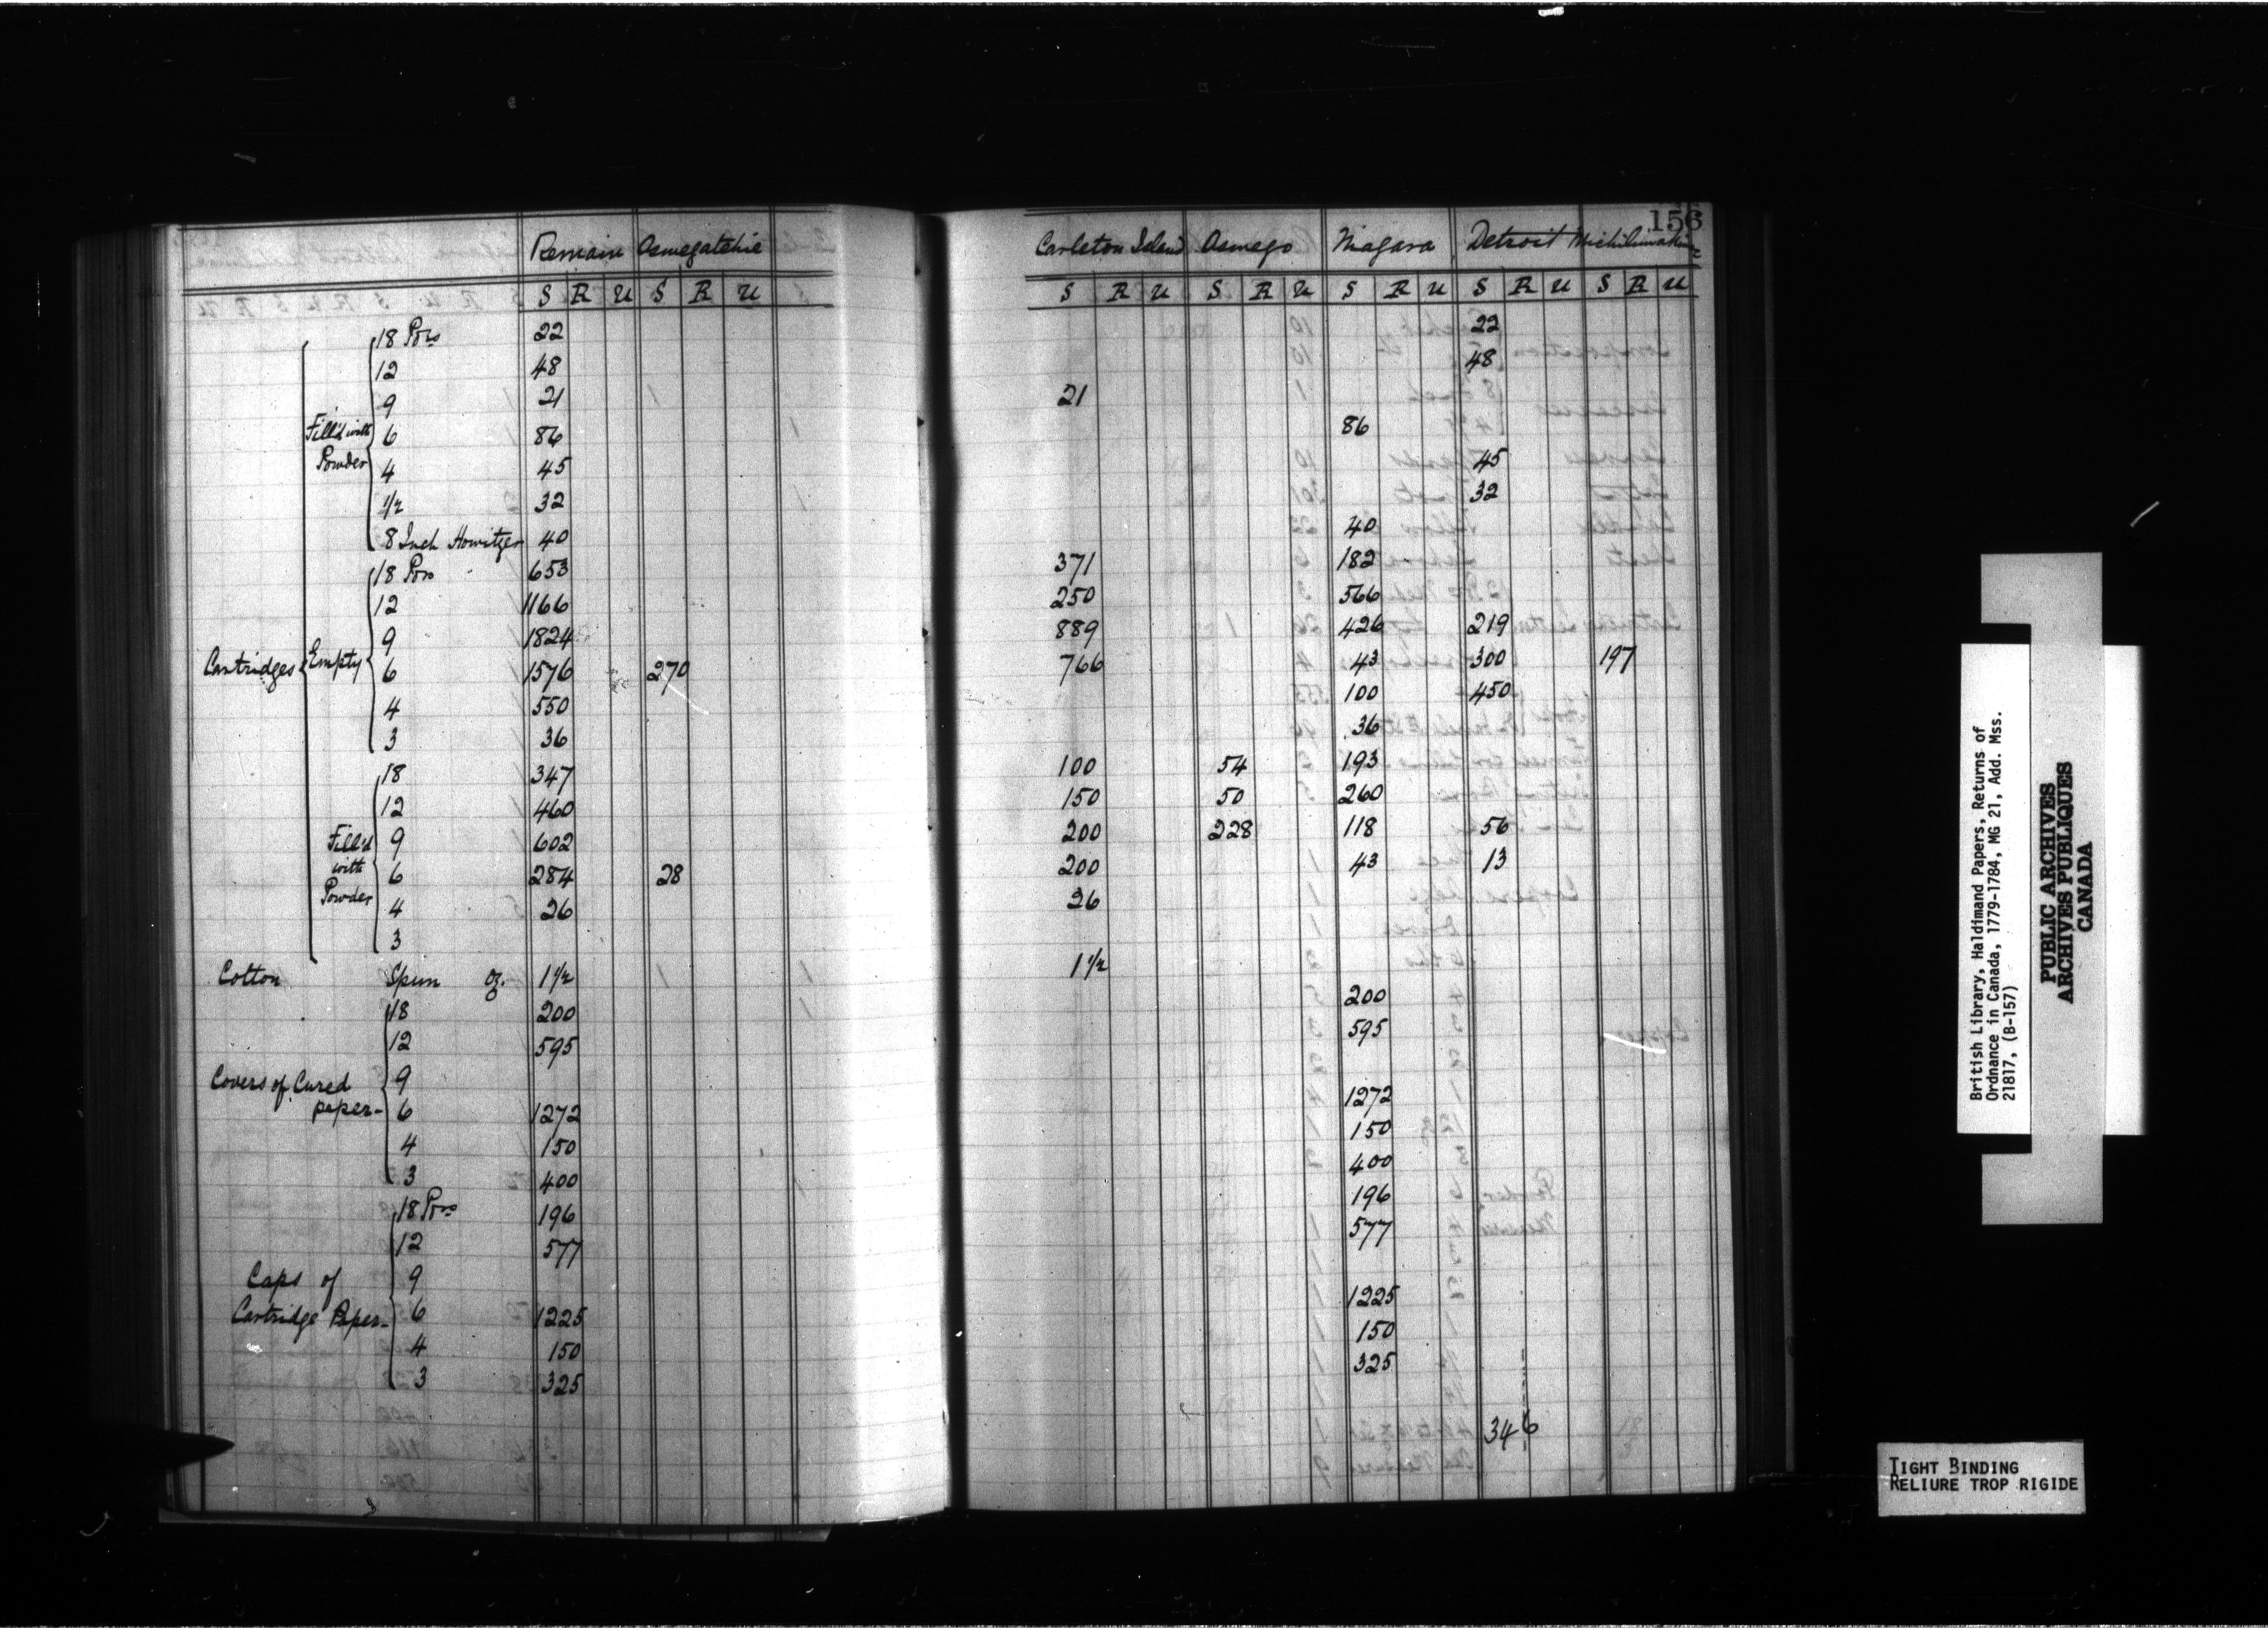 156
Remain Oswegatchie Carleton Island Oswego Niagara Detroit Michilimakinac
S R U S R U S R U S R U S R U S R U S R U
Cartridges
Fill'd with Powder
18 Pors 22 22
12 48 48
9 21 21
6 86 86
4 45 45
1/2 32 32
8 Inch Howitzer 40 40
Empty
18 Pors 653 371 182
12 1166 250 566
9 1824 889 426 219
6 1576 270 766 43 300 197
4 550 100 450
3 36 36
Fill'd with Powder
18 347 100 54 193
12 460 150 50 260
9 602 200 228 118 56
6 284 28 200 43 13
4 26 26
3
Cotton Spun oz. 1 1/2 1 1/2
Covers of Cured paper-
18 200 200
12 595 595
9
6 1272 1272
4 150 150
3 400 400
Caps of Cartridge Paper-
18 Pors 196 196
12 577 577
9
6 1225 1225
4 150 150
3 325 325
346
British Library, Haldimand Papers, Returns of
Ordnance in Canada, 1779-1784, MG 21, Add. Mss.
21817, (B-157)
PUBLIC ARCHIVES
ARCHIVES PUBLIQUES
CANADA
TIGHT BINDING
RELIURE TROP RIGIDE